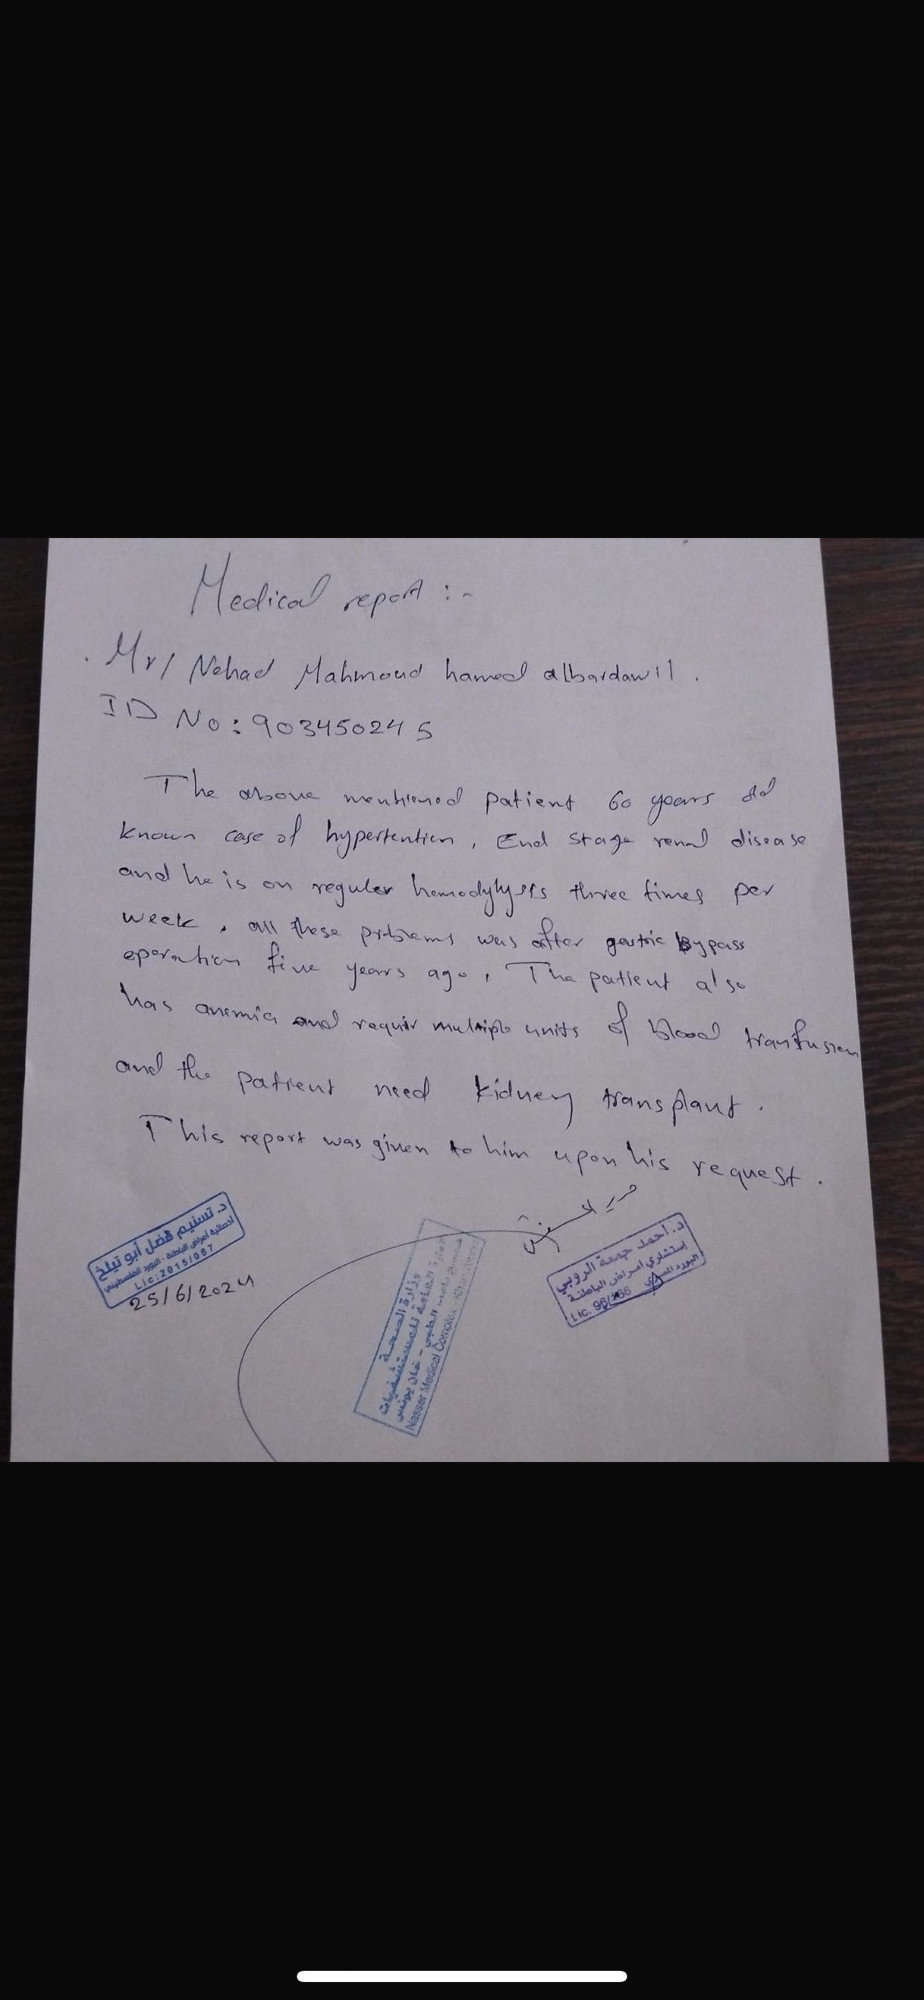 Medical report :-
. Mr/ Nehad Mahmoud hamed albardawil .
ID No: 903450245
The above mentioned patient 60 years old
known case of hypertention, End stage renal disease
and he is on reguler hemodylysis three times per
week, all these problems was after gastric Bypass
operation five years ago, The patient also
has anemia and requir multiple units of blood tranfusion
and the patient need kidney transplant.
This report was given to him upon his request.
د. تسنيم فضل أبو تيلخ
أخصائية أمراض الباطنة - البورد الفلسطيني
Lic: 2015/087
25/6/2024
وزارة الصحة
الإدارة العامة للمستشفيات
مجمع ناصر الطبي - خان يونس
Nasser Medical Complex - Khan Younis
د. أحمد جمعة الروبي
إستشاري أمراض الباطنة
Lic. 96/